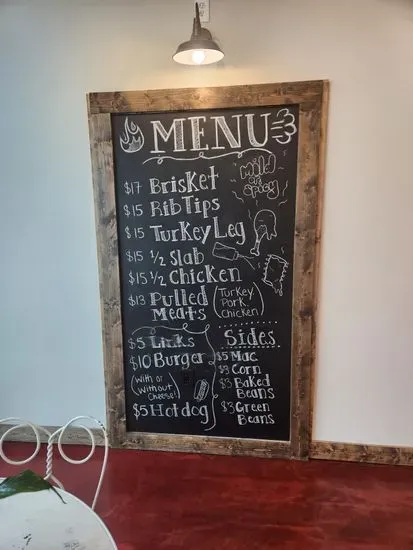 MENU
Mild
or
Spicy
$17 Brisket
$15 Rib Tips
$15 Turkey Leg
$15 1/2 Slab
$15 1/2 Chicken
$13 Pulled
Meats
Turkey
Pork
Chicken
$5 Links
$10 Burger
(With or
Without
Cheese!)
$5 Hotdog
Sides
$5 Mac
$3 Corn
$3 Baked
Beans
$3 Green
Beans